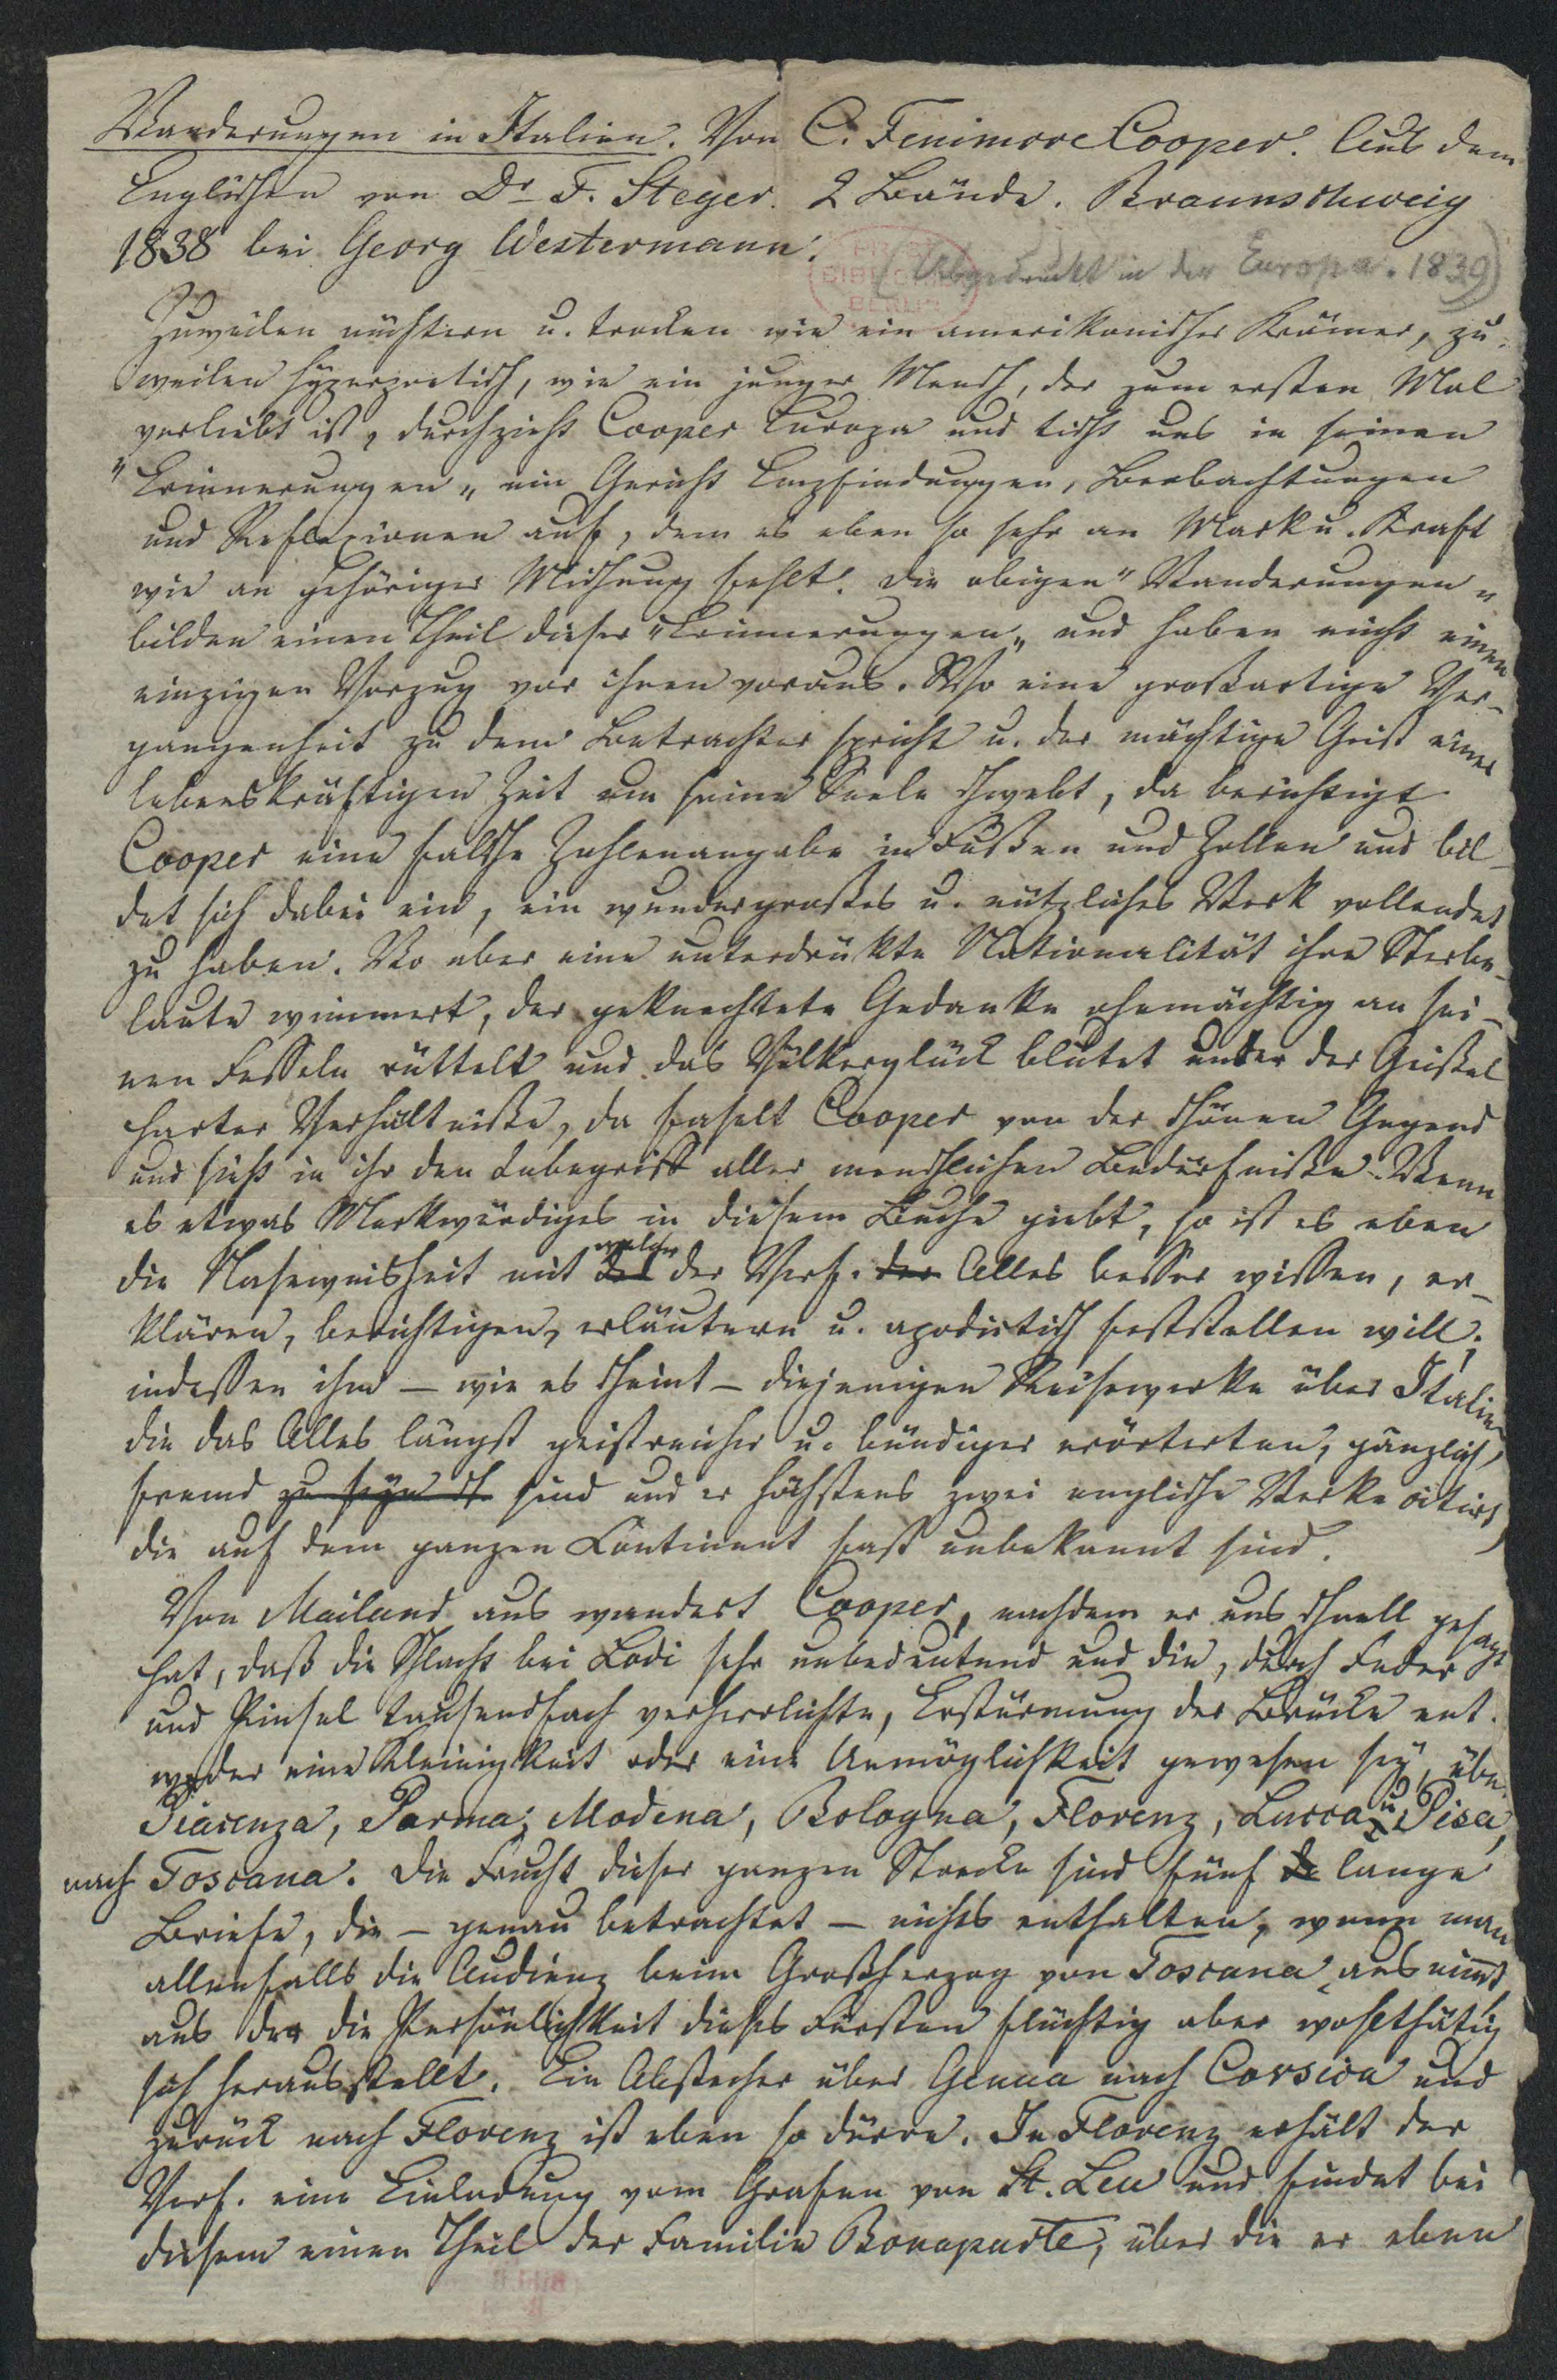 Wanderungen in Italien. Von C. Fenimore Cooper. Aus dem
Englischen von Dr F. Steger. 2 Bände. Braunschweig
1838 bei Georg Westermann.
(Abgedruckt in der Europa. 1839)
Zuweilen nüchtern u. trocken wie ein amerikanischer Krämer, zu-
weilen hyperpoetisch, wie ein junger Mensch, der zum ersten Mal
verliebt ist, durchzieht Cooper Europa und tischt uns in seinen
"Erinnerungen" ein Gericht Empfindungen, Beobachtungen
und Reflexionen auf, dem es eben so sehr an Mark u. Kraft
wie an gehöriger Mischung fehlt. Die obigen "Wanderungen"
bilden einen Theil dieser "Erinnerungen" und haben nicht einen
einzigen Vorzug vor ihnen voraus. Wo eine großartige Ver-
gangenheit zu dem Betrachter spricht u. der mächtige Geist einer
lebenskräftigen Zeit um seine Seele schwebt, da berichtigt
Cooper eine falsche Zahlenangabe in Fußen und Zollen und bil-
det sich dabei ein, ein wundergroßes u. nützliches Werk vollendet
zu haben. Wo aber eine unterdrükte Nationalität ihre Sterbe-
laute wimmert, der geknechtete Gedanke ohnmächtig an sei-
nen Fesseln rüttelt und das Völkerglück blutet unter der Geißel
harter Verhältniße, da faselt Cooper von der schönen Gegend
und sieht in ihr den Inbegriff aller menschlichen Bedürfniße. Wenn
es etwas Merkwürdiges in diesem Buche giebt, so ist es eben
die Naseweisheit mit welcher der Verf. der Alles besser wissen, er-
klären, berichtigen, erläutern u. apodictisch feststellen will,
indessen ihm – wie es scheint – diejenigen Reisewerke über Italien
die das Alles längst geistreicher u. bündiger erörterten, gänzlich
fremd zu seyn sch sind und er höchstens zwei englische Werke citirt,
die auf dem ganzen Continent fast unbekannt sind.
Von Mailand aus wandert Cooper, nachdem er uns schnell gesagt
hat, daß die Schlacht bei Lodi sehr unbedeutend und die, durch Feder
und Pinsel tausendfach verherrlichte, Erstürmung der Brücke ent-
weder eine Kleinigkeit oder eine Unmöglichkeit gewesen sey, über
Piacenza, Parma, Modena, Bologna, Florenz, Lucca u Pisa,
nach Toscana. Die Frucht dieser ganzen Strecke sind fünf lange
Briefe, die – genau betrachtet – nichts enthalten, wenn man
allenfalls die Audienz beim Großherzog von Toscana ausnimmt
aus der die Persönlichkeit dieses Fürsten flüchtig aber wohlthätig
sich herausstellt. Ein Abstecher über Genua nach Corsica und
zurück nach Florenz ist eben so dürre. In Florenz erhält der
Verf. eine Einladung vom Grafen von St. Leu und findet bei
diesem einen Theil der Familie Bonaparte, über die er eben